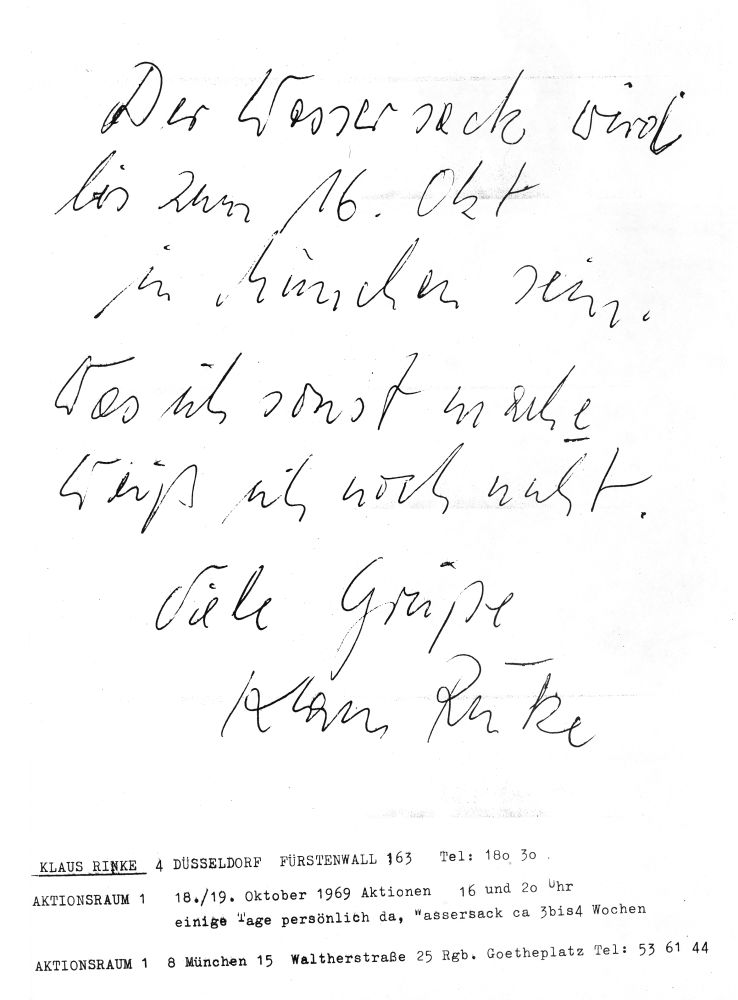 Der Wassersack wird
bis zum 16. Okt
in München sein.
Was ich sonst mache
weiß ich noch nicht.
Viele Grüße
Klaus Rinke
KLAUS RINKE 4 DÜSSELDORF FÜRSTENWALL 163 Tel: 18o 3o
AKTIONSRAUM 1 18./19. Oktober 1969 Aktionen 16 und 2o Uhr
einige Tage persönlich da, Wassersack ca 3bis4 Wochen
AKTIONSRAUM 1 8 München 15 Waltherstraße 25 Rgb. Goetheplatz Tel: 53 61 44